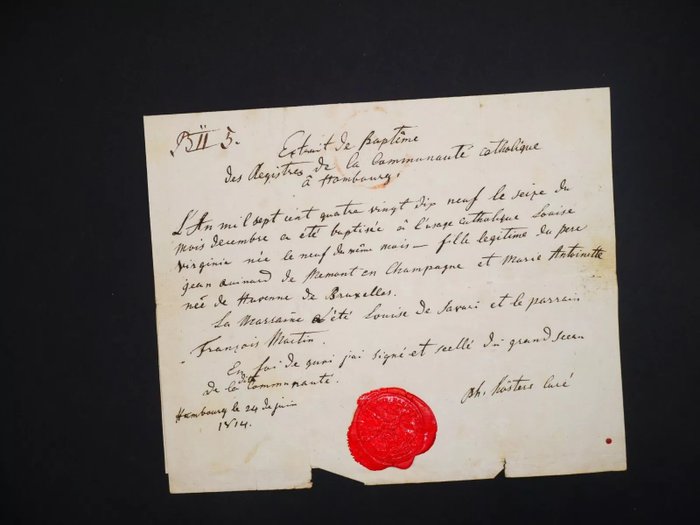 B II 5.
Extrait de Baptême
des Registres de la Communauté catholique
à Hambourg.
L'An mil sept cent quatre vingt dix neuf le seize du
mois decembre a eté baptisée à l'usage catholique Louise
Virginie née le neuf du même mois — fille legitime du pere
jean de en Champagne et Marie Antoinette
née de Havenne de Bruxelles.
La Marraine a été Louise de et le parrain
François Martin.
En foi de quoi j'ai signé et scellé du grand sceau
de la dite Communauté.
Hambourg le 24 de juin
1814.
ph. Curé